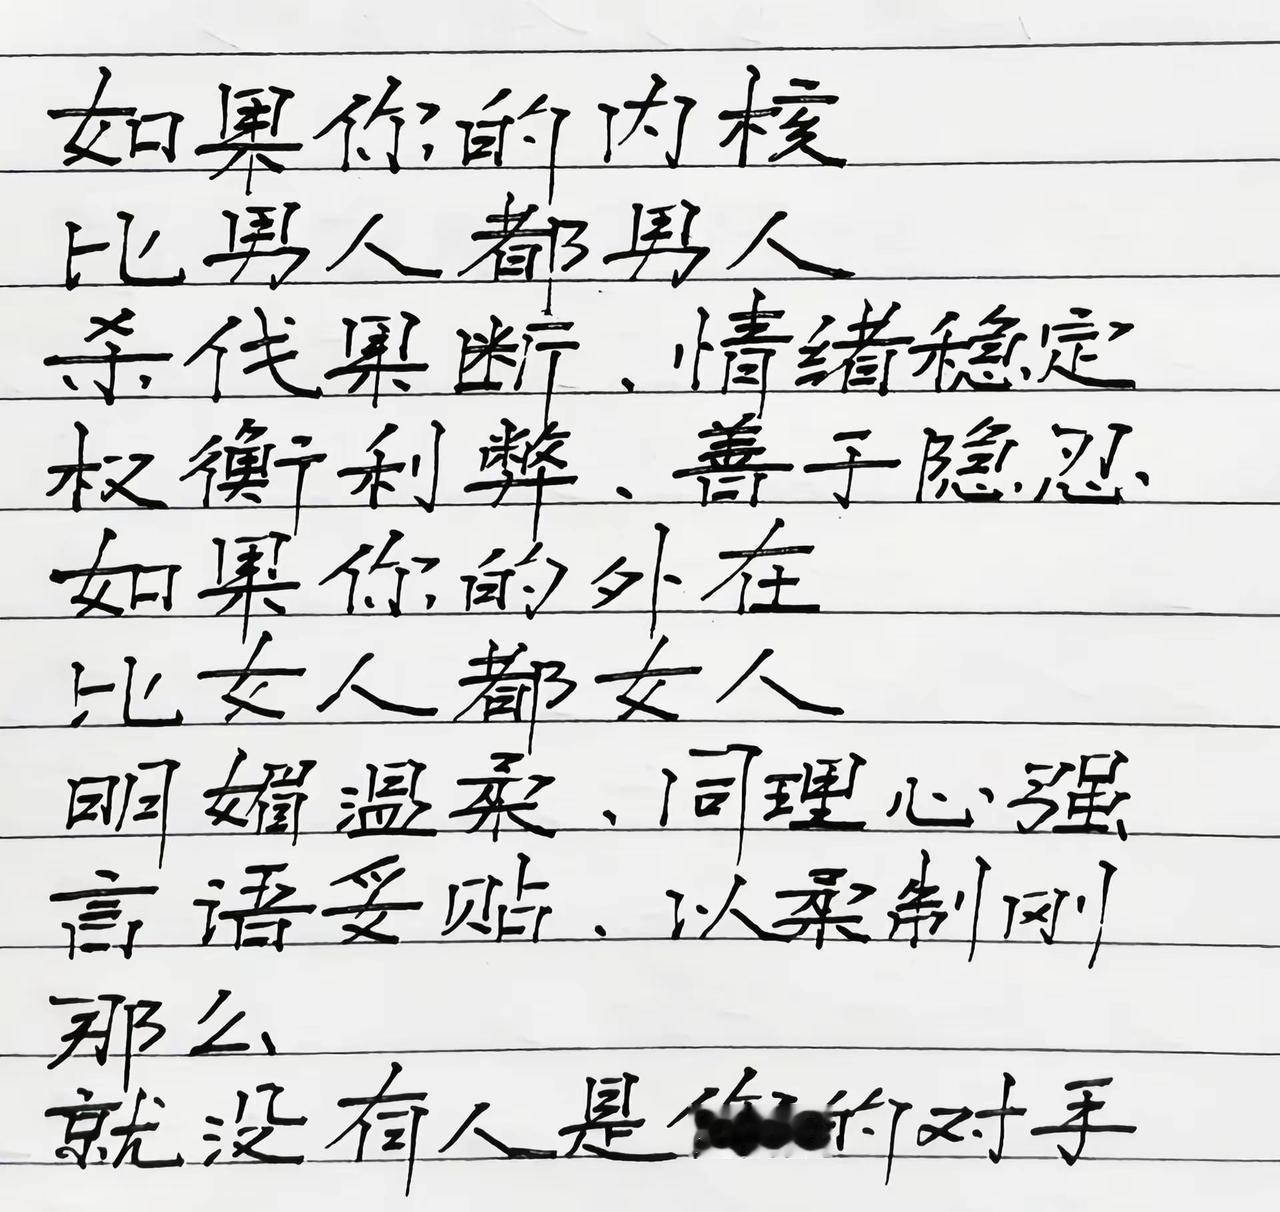 如果你的内核
比男人都男人
杀伐果断、情绪稳定
权衡利弊、善于隐忍、
如果你的外在
比女人都女人
明媚温柔、同理心强
言语妥贴、以柔制刚
那么
就没有人是你的对手